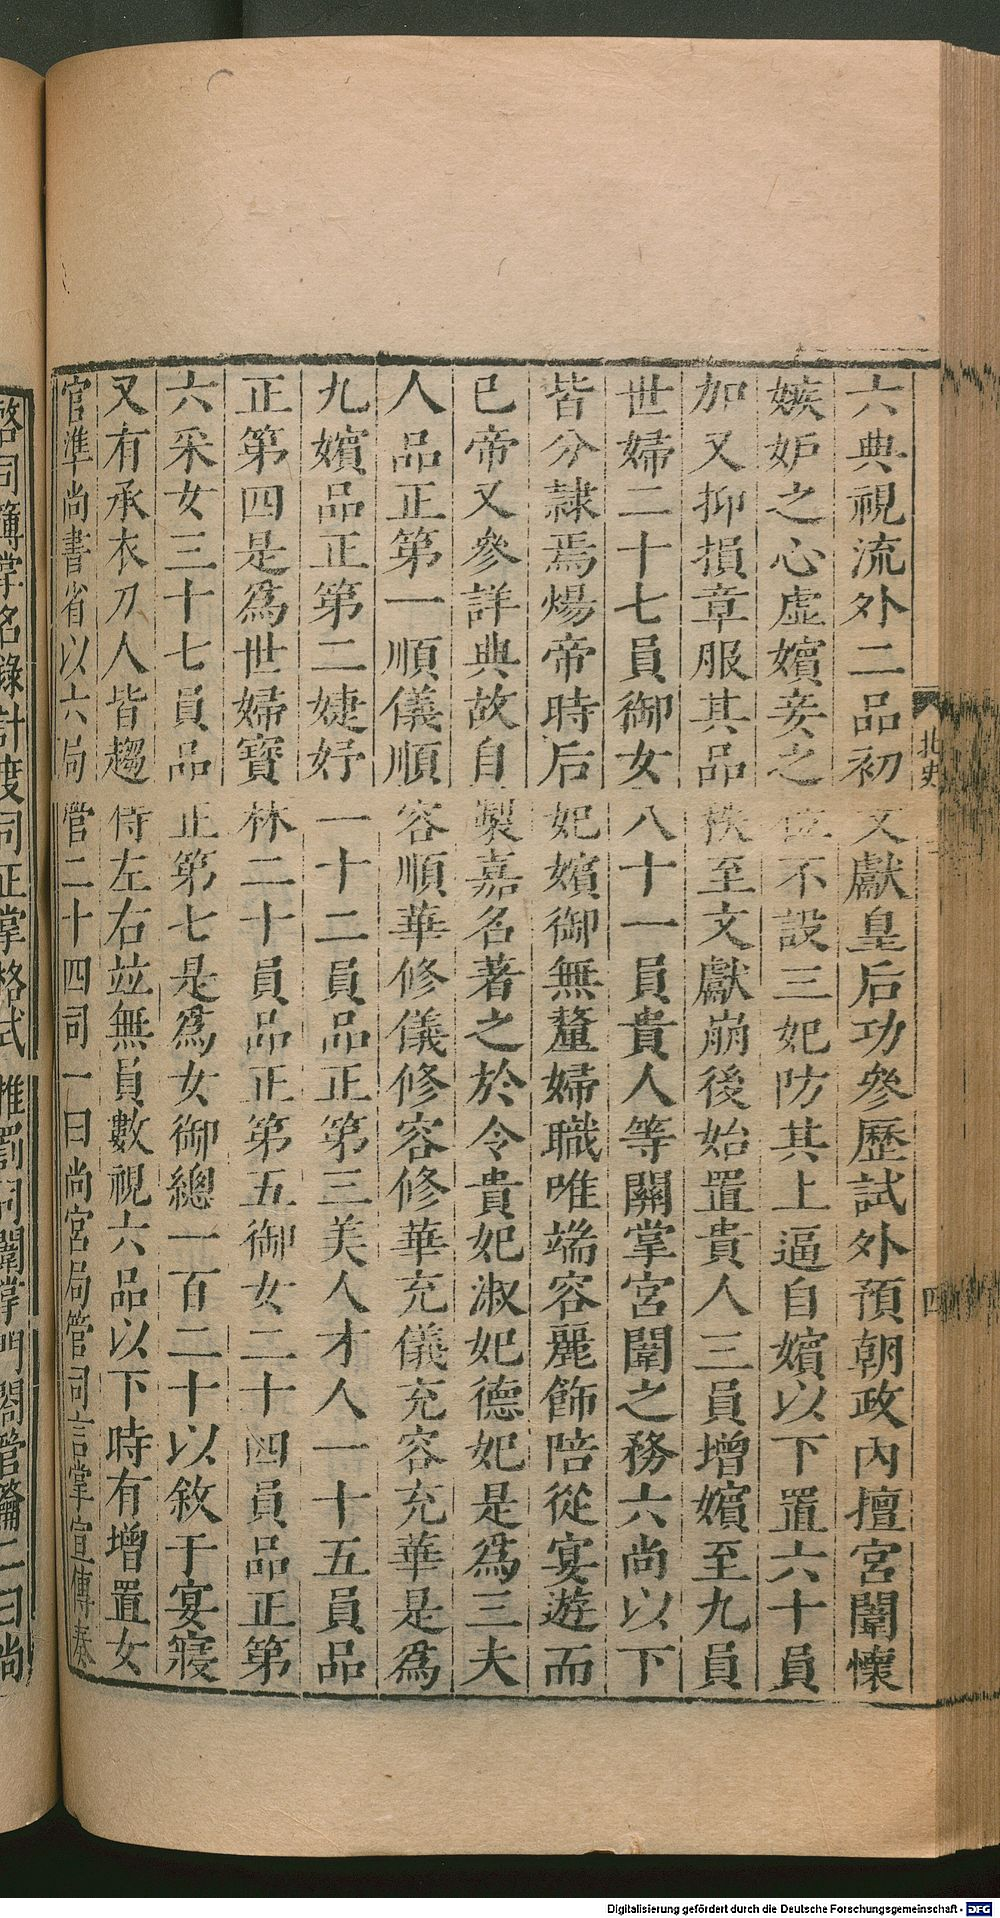 六典視流外二品初文獻皇后功參歷試外預朝政內擅宮闈懷
嫉妒之心虛嬪妾之位不設三妃防其上逼自嬪以下置六十員
加又抑損章服其品秩至文獻崩後始置貴人三員增嬪至九員
世婦二十七員御女八十一員貴人等關掌宮闈之務六尚以下
皆分隷焉煬帝時后妃嬪御無釐婦職唯端容麗飾陪從宴遊而
已帝又參詳典故自製嘉名著之於令貴妃淑妃德妃是爲三夫
人品正第一順儀順容順華修儀修容修華充儀充容充華是爲
九嬪品正第二婕妤一十二員品正第三美人才人一十五員品
正第四是爲世婦寶林二十員品正第五御女二十四員品正第
六采女三十七員品正第七是爲女御總一百二十以敘于宴寢
又有承衣刀人皆趨侍左右竝無員數視六品以下時有增置女
官準尚書省以六局管二十四司一曰尚宮局管司言掌宣傳奏
北史
四
啓司簿掌名錄計度司正掌格式推罰司闈掌門閤管鑰二曰尚
Digitalisierung gefördert durch die Deutsche Forschungsgemeinschaft - DFG